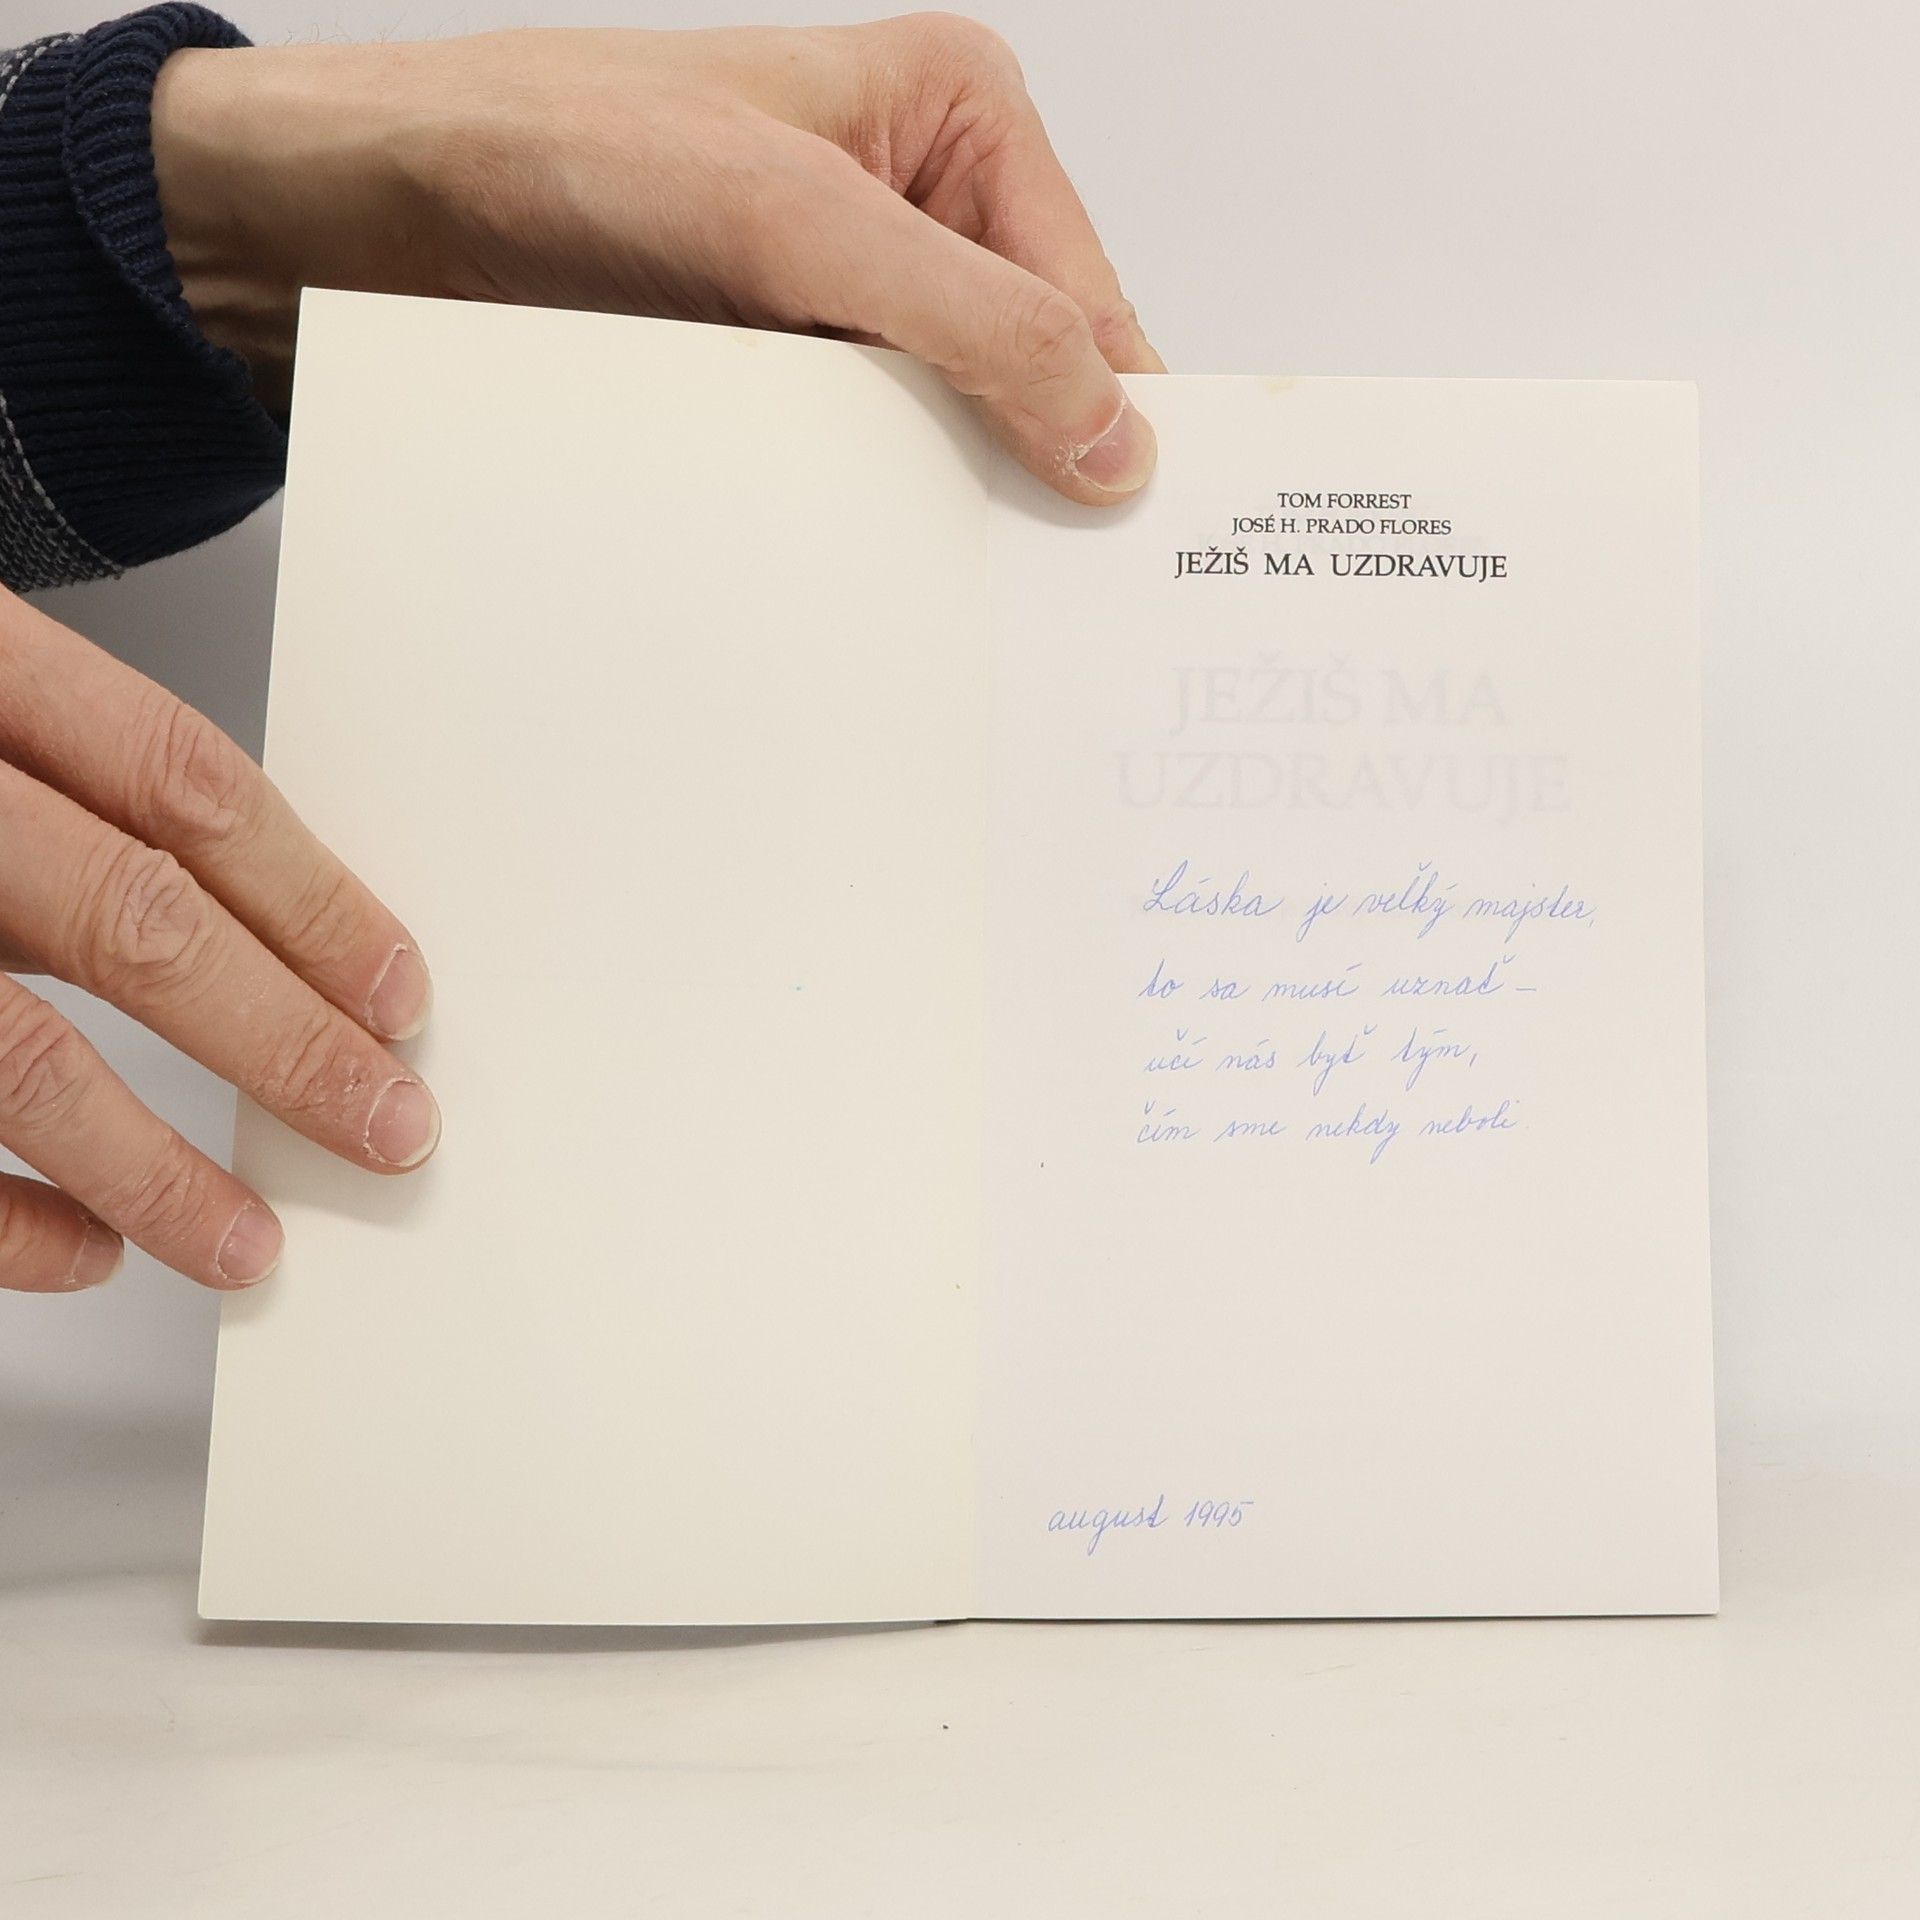 TOM FORREST
JOSÉ H. PRADO FLORES
JEŽIŠ MA UZDRAVUJE
JEŽIŠ MA
UZDRAVUJE
Láska je veľký majster,
to sa musí uznať –
učí nás byť tým,
čím sme nekdy neboli.
august 1995